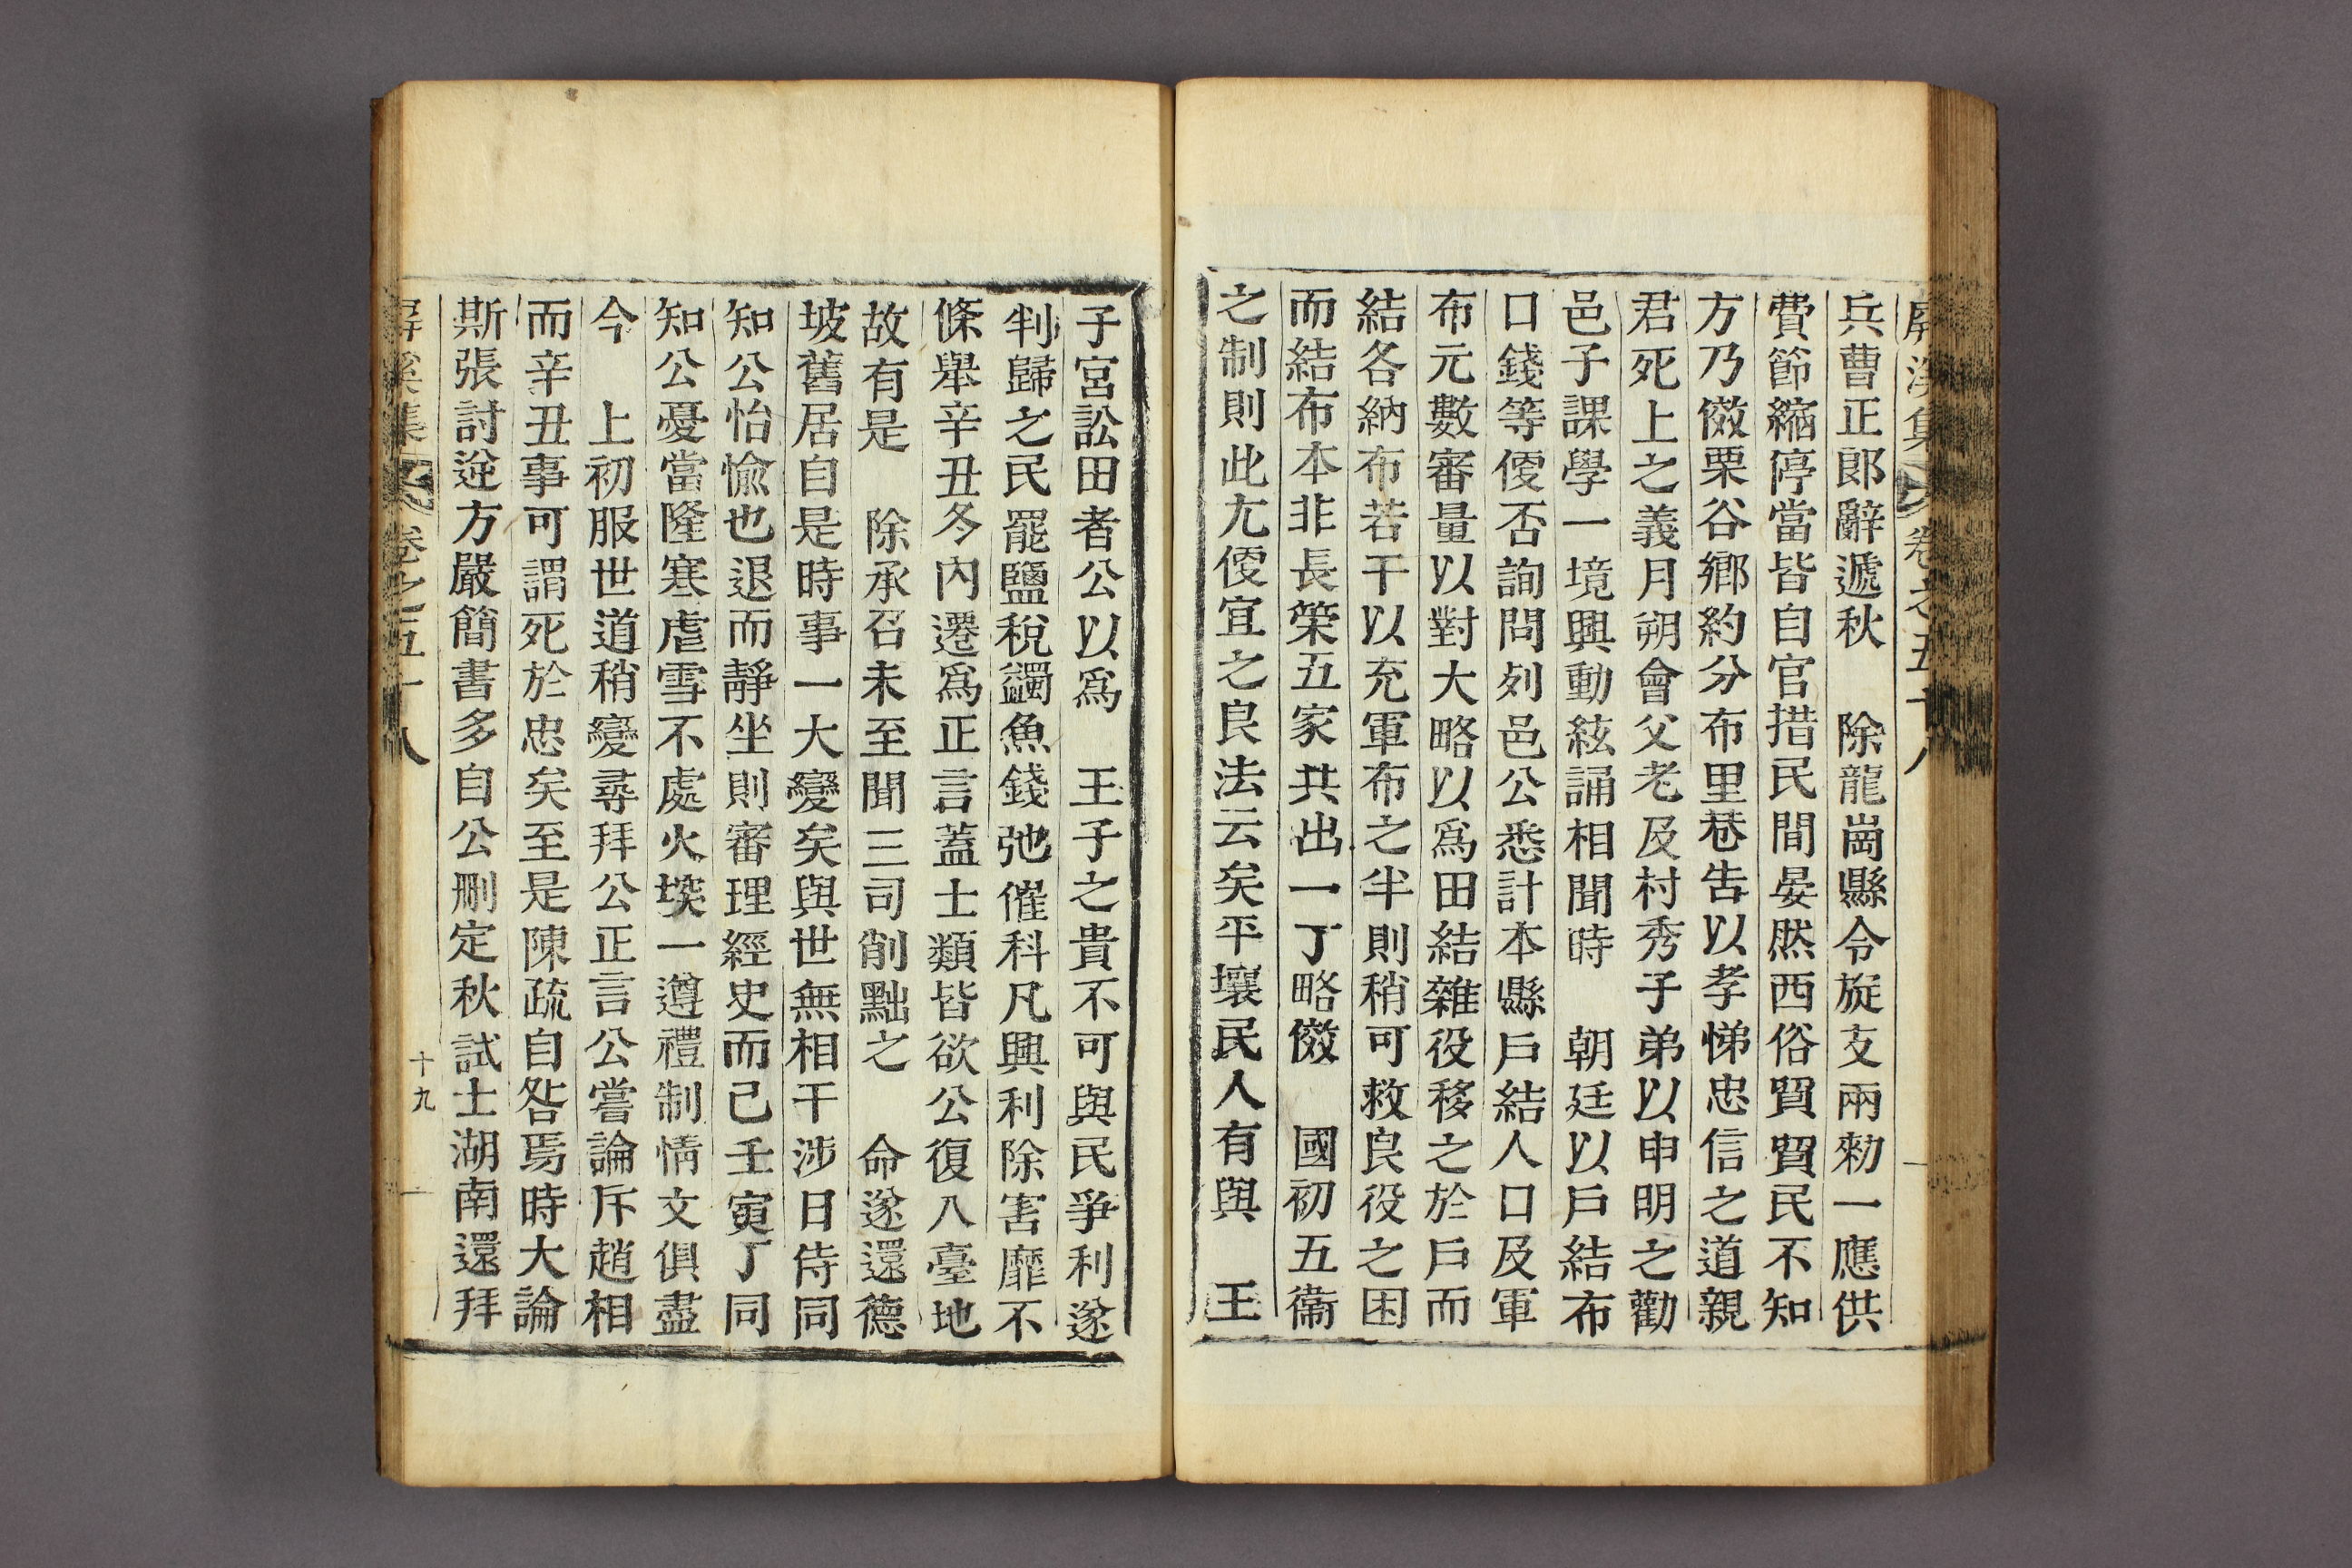 屛溪集 卷之五十八
兵曹正郎辭遞秋 除龍崗縣令旋支兩勑一應供
費節縮停當皆自官措民間晏然西俗貿貿民不知
方乃倣栗谷鄉約分布里巷告以孝悌忠信之道親
君死上之義月朔會父老及村秀子弟以申明之勸
邑子課學一境興動絃誦相聞時 朝廷以戶結布
口錢等便否詢問列邑公悉計本縣戶結人口及軍
布元數審量以對大略以爲田結雜役移之於戶而
結各納布若干以充軍布之半則稍可救良役之困
而結布本非長策五家共出一丁略倣 國初五衞
之制則此尤便宜之良法云矣平壤民人有與 王
子宮訟田者公以爲 王子之貴不可與民爭利遂
判歸之民罷鹽稅蠲魚錢弛催科凡興利除害靡不
條舉辛丑冬內遷爲正言蓋士類皆欲公復入臺地
故有是 除承召未至聞三司削黜之 命遂還德
坡舊居自是時事一大變矣與世無相干涉日侍同
知公怡愉也退而靜坐則審理經史而已壬寅丁同
知公憂當隆寒虐雪不處火堗一遵禮制情文俱盡
今 上初服世道稍變尋拜公正言公嘗論斥趙相
而辛丑事可謂死於忠矣至是陳疏自咎焉時大論
斯張討逆方嚴簡書多自公刪定秋試士湖南還拜
屛溪集 卷之五十八 十九